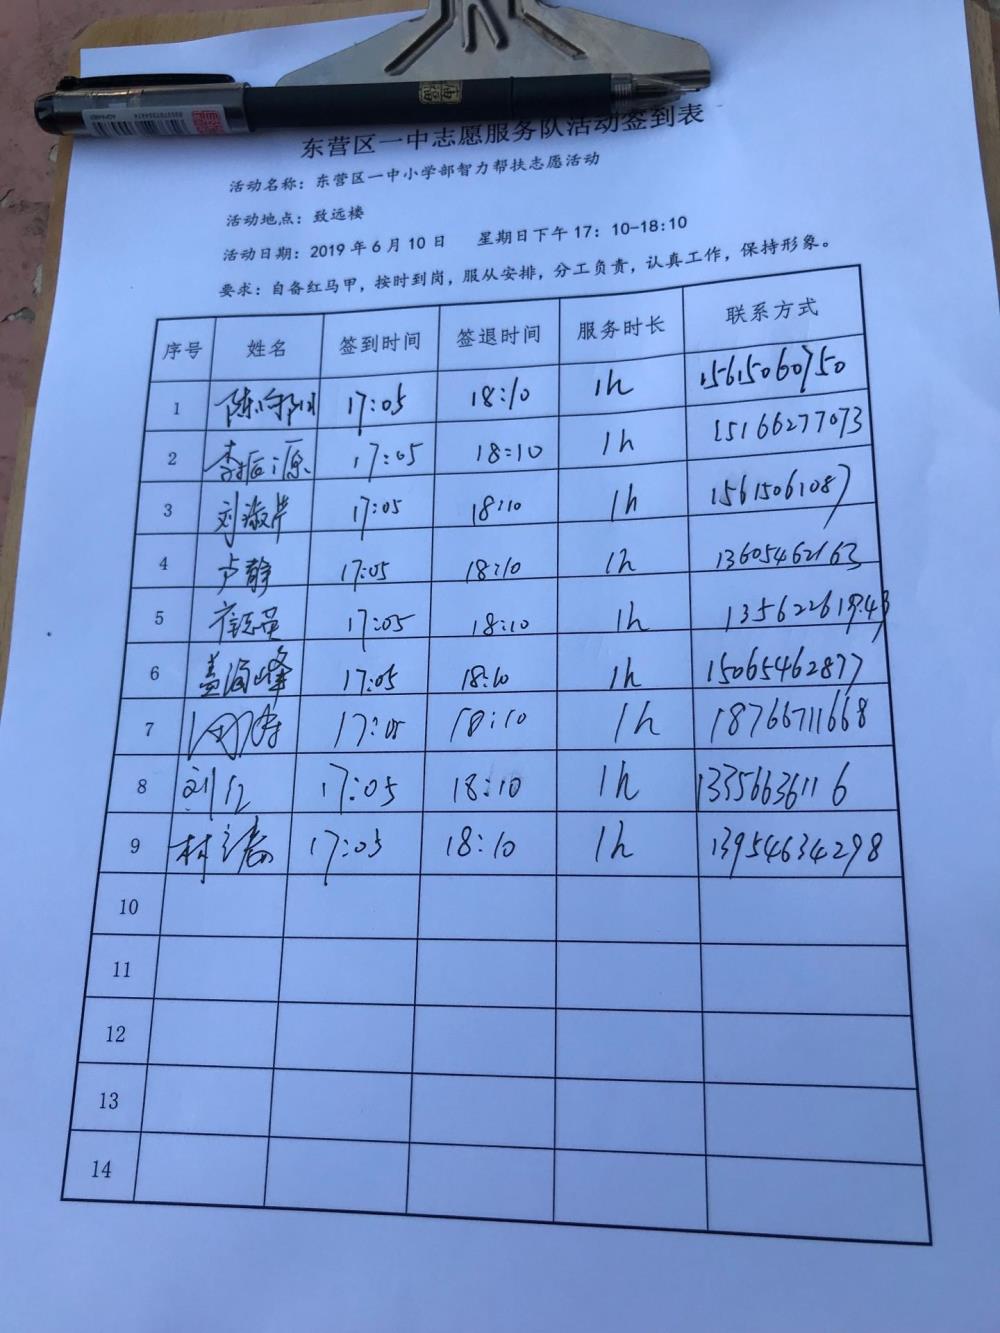 东营区一中志愿服务队活动签到表
活动名称：东营区一中小学部智力帮扶志愿活动
活动地点：致远楼
活动日期：2019年6月10日 星期日下午17：10-18:10
要求：自备红马甲，按时到岗，服从安排，分工负责，认真工作，保持形象。
序号 姓名 签到时间 签退时间 服务时长 联系方式
1 17:05 18:10 1h 15615060750
2 李振源 17:05 18:10 1h 15166277073
3 刘淑芹 17:05 18:10 1h 15615061087
4 卢静 17:05 18:10 1h 13605462163
5 17:05 18:10 1h
6 盖海峰 17:05 18:10 1h 15065462877
7 17:05 18:10 1h 18766711668
8 刘红 17:05 18:10 1h 13356636116
9 林春 17:05 18:10 1h 13954634298
10
11
12
13
14